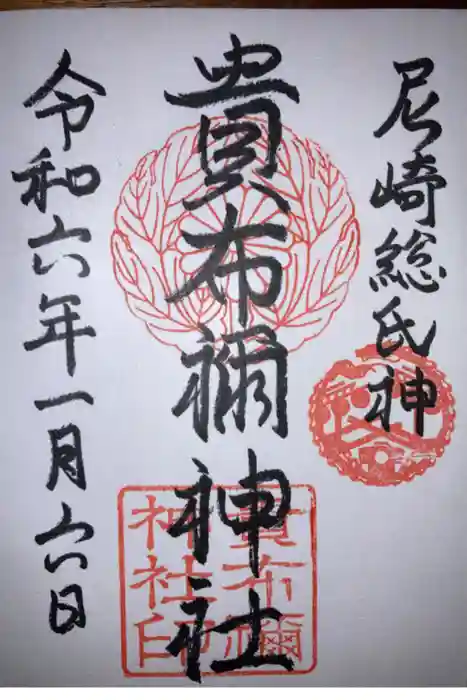 尼崎総氏神
貴布禰神社
令和六年一月六日
貴布禰
神社印